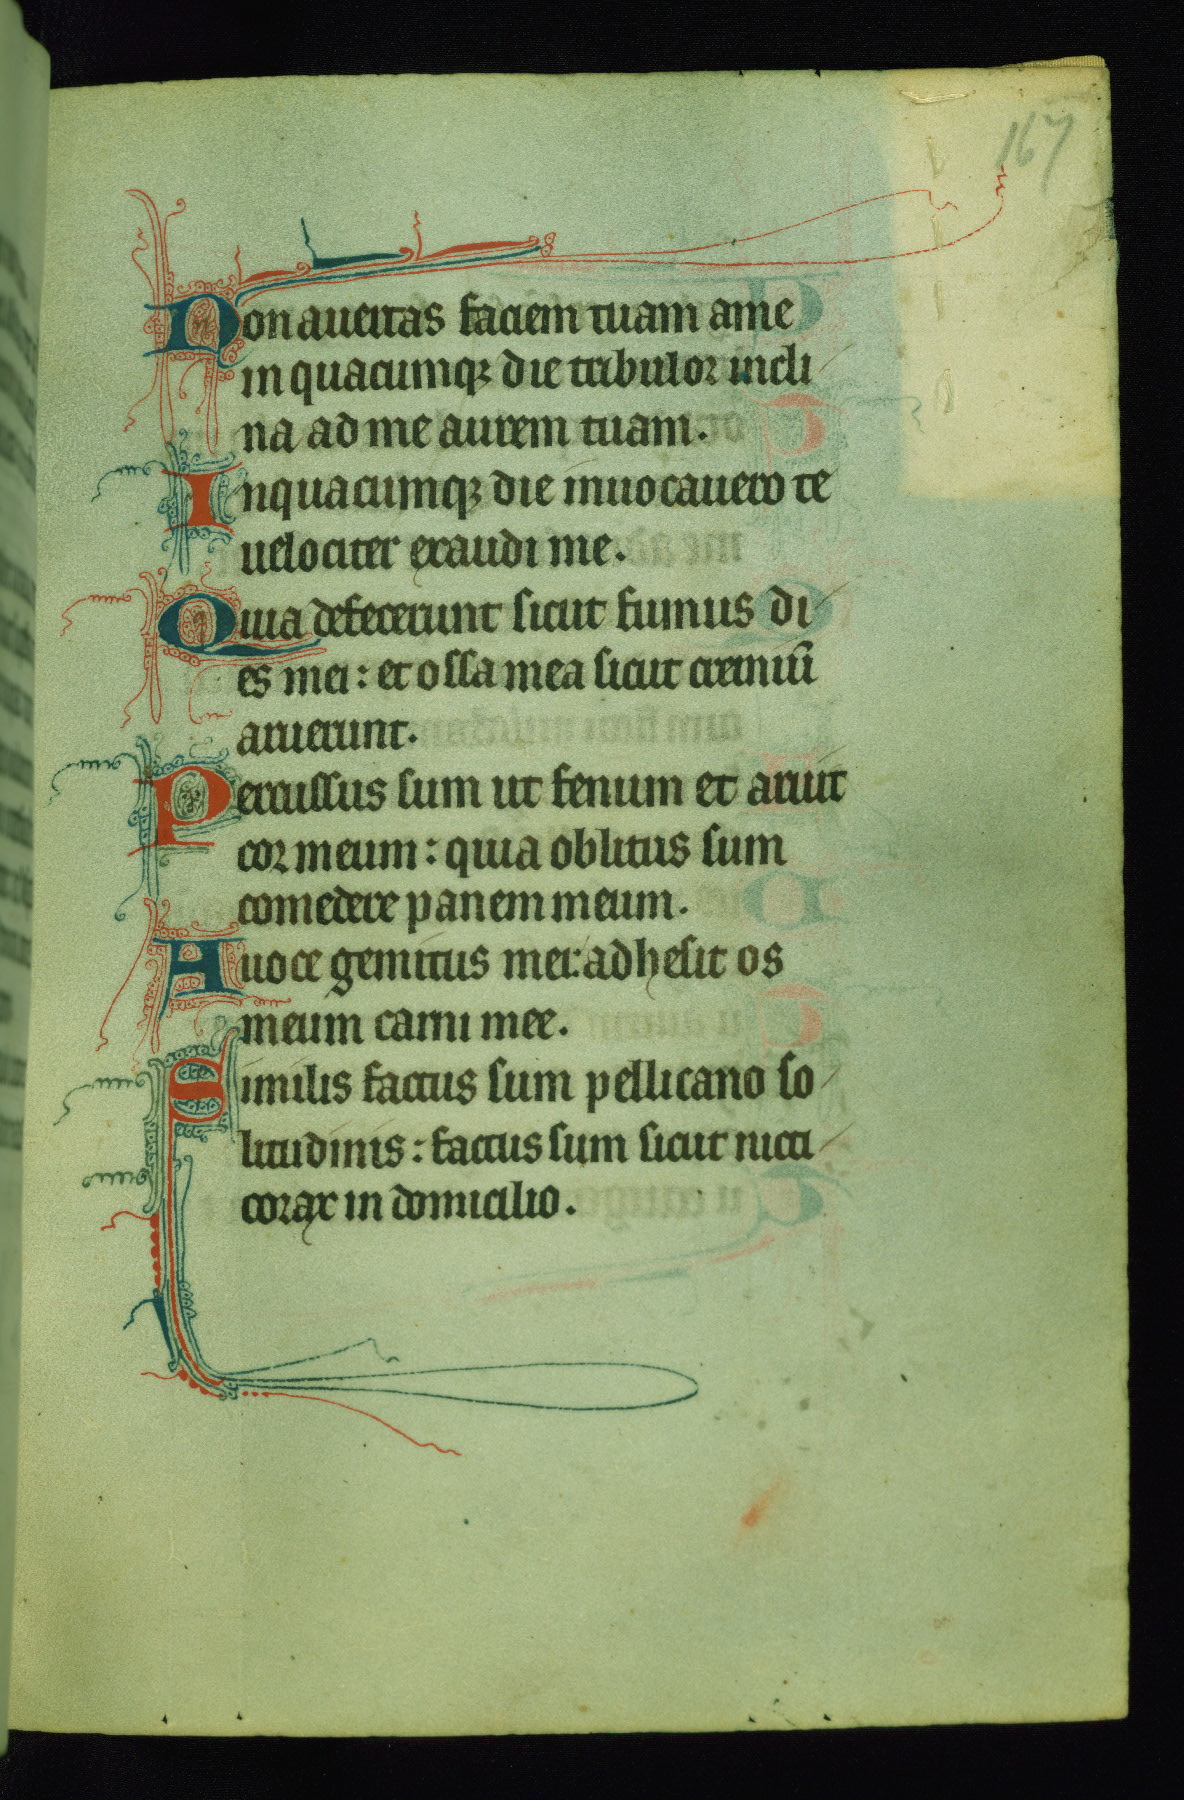 167
Non auertas faciem tuam a me
in quacumqꝫ die tribulor incli
na ad me aurem tuam.
In quacumqꝫ die inuocauero te
uelociter exaudi me.
Quia defecerunt sicut fumus di
es mei: et ossa mea sicut cremiũ
aruerunt.
Percussus sum ut fenum et aruit
cor meum: quia oblitus sum
comedere panem meum.
A uoce gemitus mei: adhesit os
meum carni mee.
Similis factus sum pellicano so
litudinis: factus sum sicut nicti
corax in domicilio.